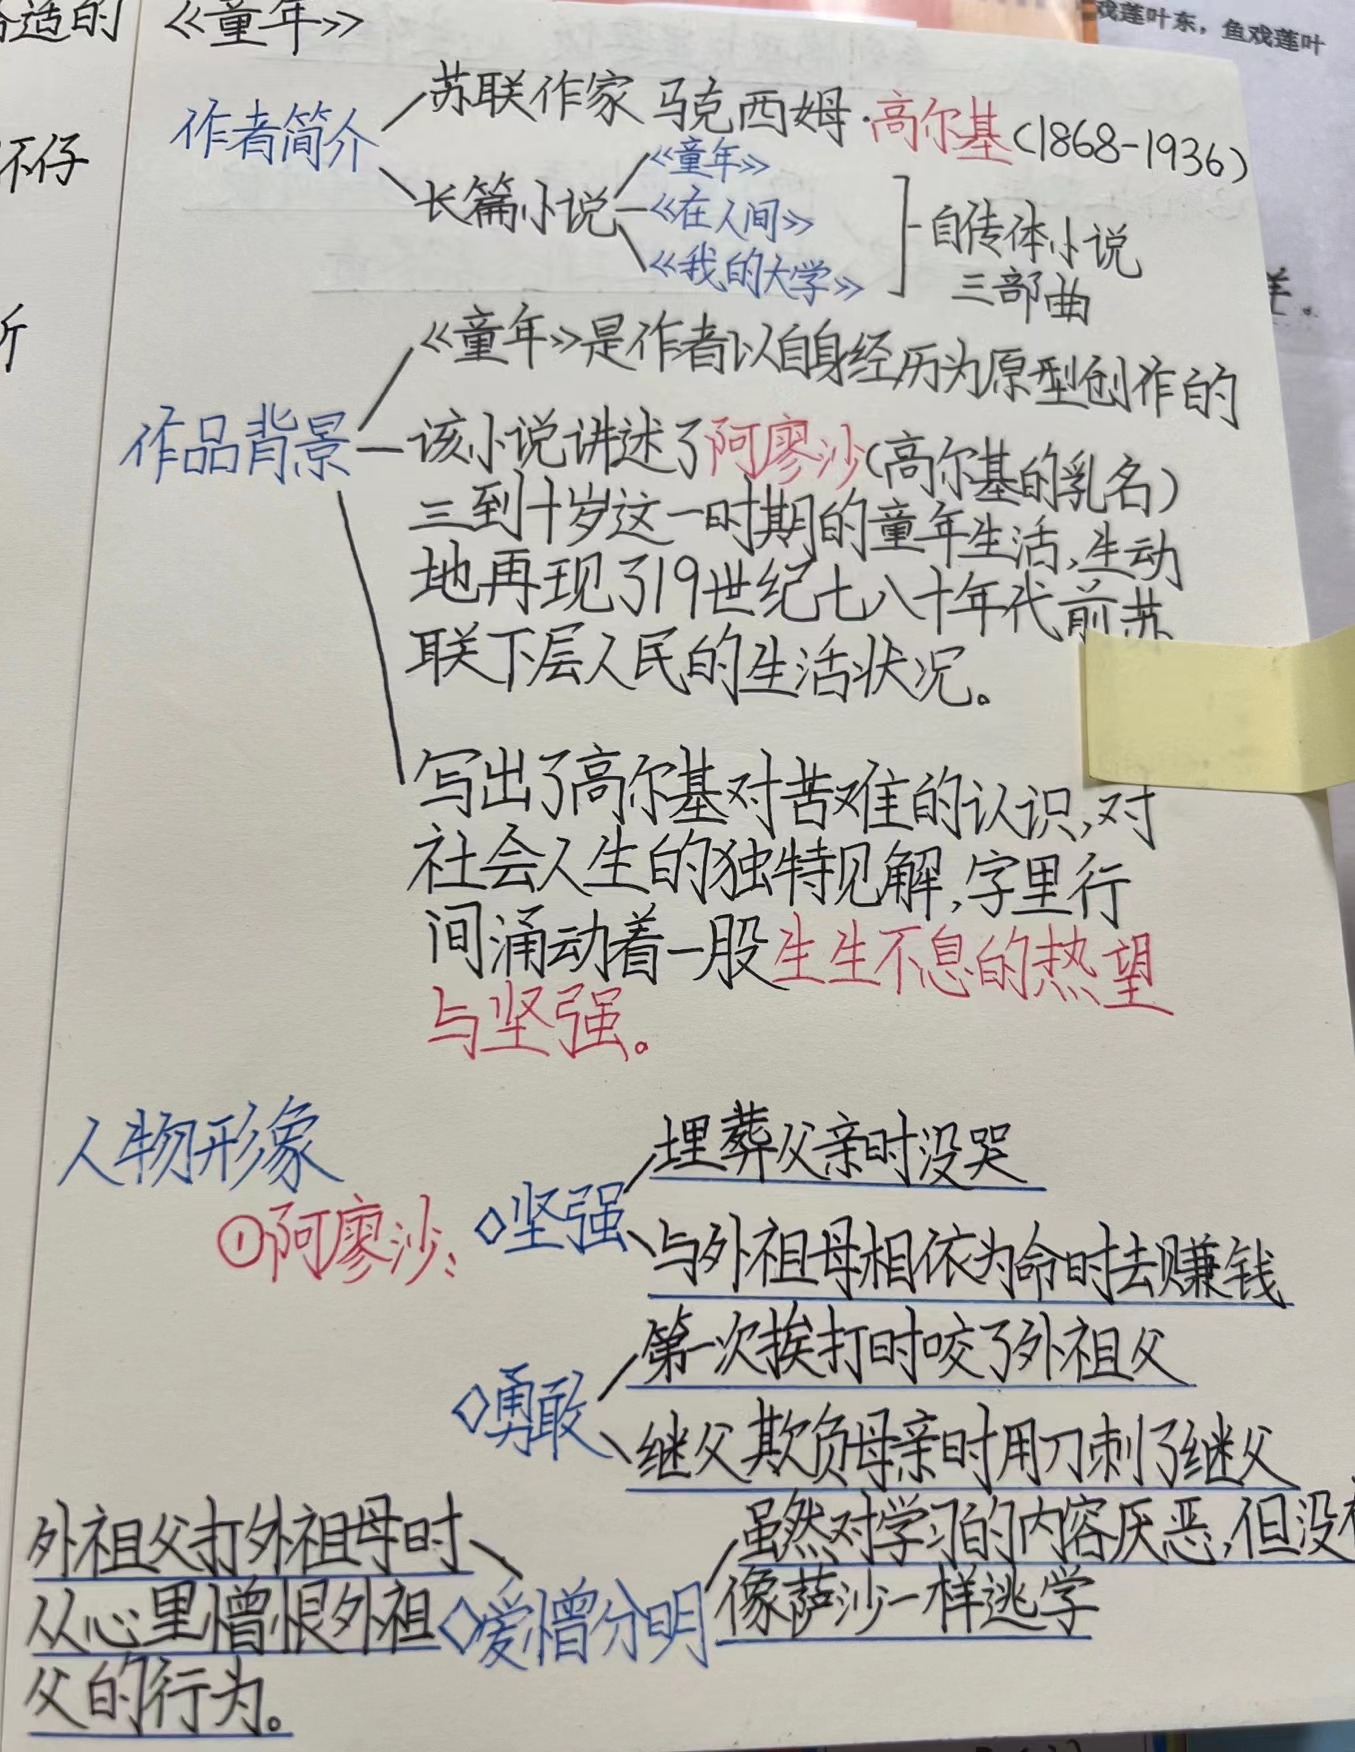 适的
《童年》
戏莲叶东，鱼戏莲叶
作者简介
苏联作家 马克西姆·高尔基(1868-1936)
长篇小说
《童年》
《在人间》
《我的大学》
自传体小说
三部曲
仔
作品背景
《童年》是作者以自身经历为原型创作的
该小说讲述了阿廖沙(高尔基的乳名)
三到十岁这一时期的童年生活,生动
地再现了19世纪七八十年代前苏
联下层人民的生活状况。
写出了高尔基对苦难的认识,对
社会人生的独特见解,字里行
间涌动着一股生生不息的热望
与坚强。
人物形象
①阿廖沙:
◇坚强
埋葬父亲时没哭
与外祖母相依为命时去赚钱
◇勇敢
第一次挨打时咬了外祖父
继父欺负母亲时用刀刺了继父
◇爱憎分明
外祖父打外祖母时
从心里憎恨外祖
父的行为。
虽然对学习的内容厌恶,但没
像萨沙一样逃学